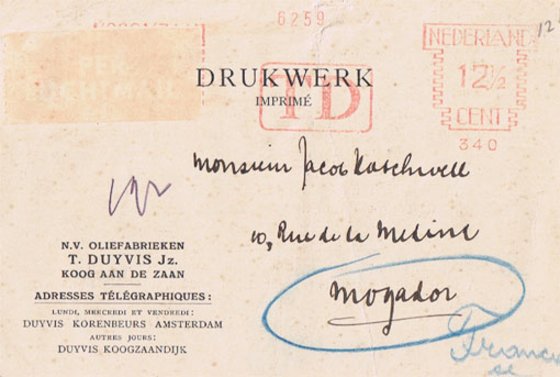 6259
12
NEDERLAND
12½
CENT
340
DRUKWERK
IMPRIMÉ
TD
Monsieur Jacob
10, Rue de la
Mogador
N.V. OLIEFABRIEKEN
T. DUYVIS Jz.
KOOG AAN DE ZAAN
ADRESSES TÉLÉGRAPHIQUES:
LUNDI, MERCREDI ET VENDREDI:
DUYVIS KORENBEURS AMSTERDAM
AUTRES JOURS:
DUYVIS KOOGZAANDIJK